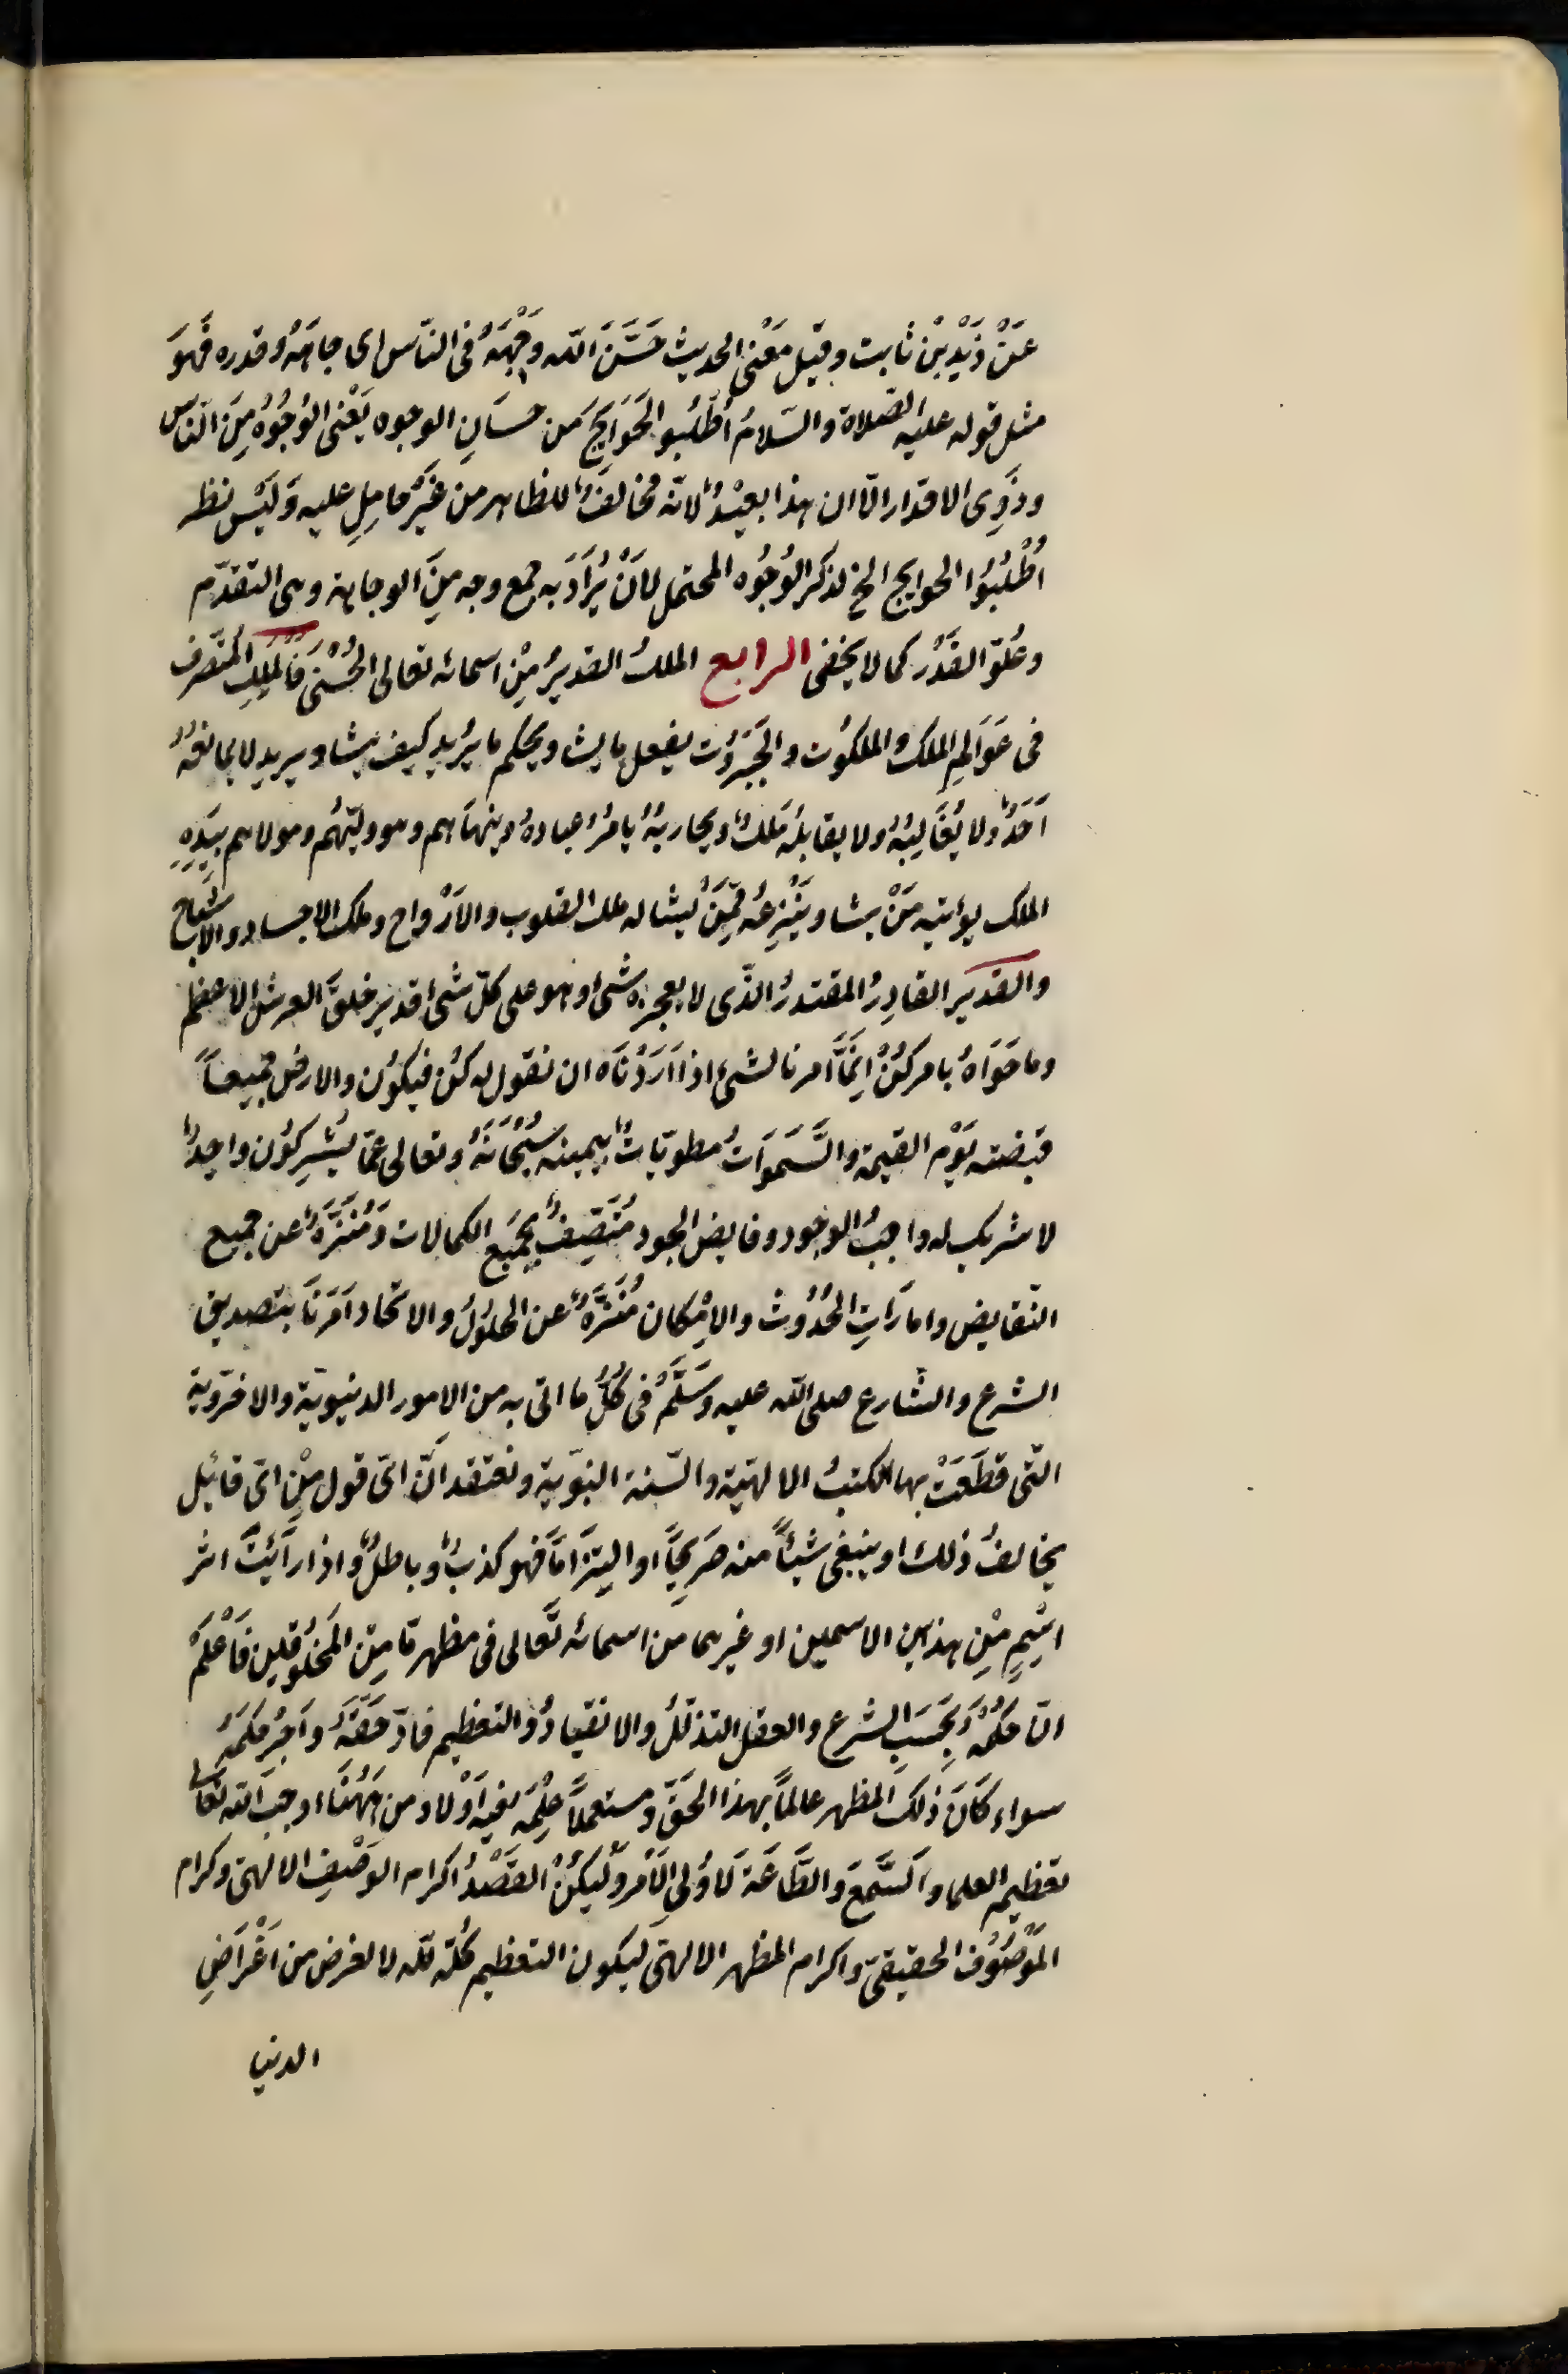 عَنْ زَيْدِ بْن ثابت وقيل مَعْنى الحديث حَسَّنَ الله وَجْهَهُ فى النّاس اى جاهَهُ وقدره فَهوَ
مثل قوله عليه الصّلاة والسّلامُ اُطْلُبُو الحَوَايِجَ مَن حسَانِ الوجوه يَعْنى الوُجُوُه مِنَ النّاس
وذَوِى الاقدار الّا ان هذا بعيْدٌ لانّه مخالفٌ للظاهر من غَيْر حامِلٍ عليه وَلَيْس نظر
اُطْلُبُوُا الحوايج الخ لذكر الوُجُوُه المحتمل لاَنْ يُرَادَ به جمع وجه مِنَ الوجاهة وهى التقدّم
وعُلوّ القَدْر كما لا يخفى الرابع الملكُ القديرُ مِنْ اسمائه تعالى الحُسْنىَ فَالملِكُ المُتَصّرف
فى عَوَالِمِ الملك والملكوُت والجَبَروُت يفعل ما يشا ويحكم ما يُريد كيف يشا ويريد لا يمانعُهُ
اَحَدٌ ولا يُغَالِبُهُ ولا يقابلهُ مَلكٌ ويحاربُهُ يامُرُ عبادهُ وينهَاهم وهو وليّهُم ومولاهم بِيَدِهِ
الملك يوٴتيه مَنْ يشا ويَنْزِعُه مِمّنْ يشا له ملك القلوب والاَرْواح وملك الاجساد والاشباح
والقدير القادِرُ المقتدرُ الذّى لا يعجزه شئٌ وهو على كلّ شئ قدير خلقَ العرش الاعظم
وما حَوَاهُ بامر كُنْ اِنَّمَا امرنا لشئ اذا اَرَدْنَاه ان نقول له كنْ فيكوُن والارضُ جميعاً
قبضته يَوْم القيمة والسَّمَوَاتُ مطويّاتٌ بيمينه سُبْحَانَهُ وتعالى عمّا يُشِركوُن واحِدٌ
لا شريك له واجبُ الوجود وفايض الجود مُتّصِفٌ بجمِيَع الكمالات وَمُنَزَّهٌ عن جميع
النّقايض وامارَاتِ الحُدُوُث والاِمْكان مُنَزَّهٌ عن الحلوُل والاتّحاد اَمَرنَا بتصديق
الشرع والشّارع صلى الله عليه وَسَلَّمُ فى كُلّ ما اتى به من الامور الدنيويّة والاخرَويّة
التّى قطعَتْ بها الكتبُ الالهيّة والسّنة النبَويّة ونعتقد اَنّ اىّ قول مِنْ اىّ قائِل
يخالفُ ذلك او ينبغى شيئاً منه صَرِيحًا او اليتزَامًا فهو كذبٌ وباطلٌ واذا رَائَيتَ اثر
اسْمٍ مِنْ هذين الاسمين او غيرهما من اسمائه تَعالى فى مظهر مّا مِنَ المَخلوُقلين فَاعْلَمْ
انّ حكمُهُ بِحَسَبِ الشرع والعقل التذلّلُ والانقيادُ والتعظيم فادّ حَقّهَ وَاَجْرِ حكمَهُ
سواء كَانَ ذلك المظهر عالماً بهذا الحَقّ ومستعملاً حِلْمَه فيه اَوْلا ومن هَهُنَا اوجبَ الله تعالى
تعظيم العلما وَالسَّمعَ وَالطَّاعَة لاوُلىِ الاَمْر وَلْيَكُنْ القَصْدُ اكرام الوَصْفِ الالهىّ وكرام
المَوْصُوُف الحقيقىّ واكرام المظهر الالهىّ ليكون التعظيم كُلّه لله لا لغرض من اَغْرَاضِ
الدنيا